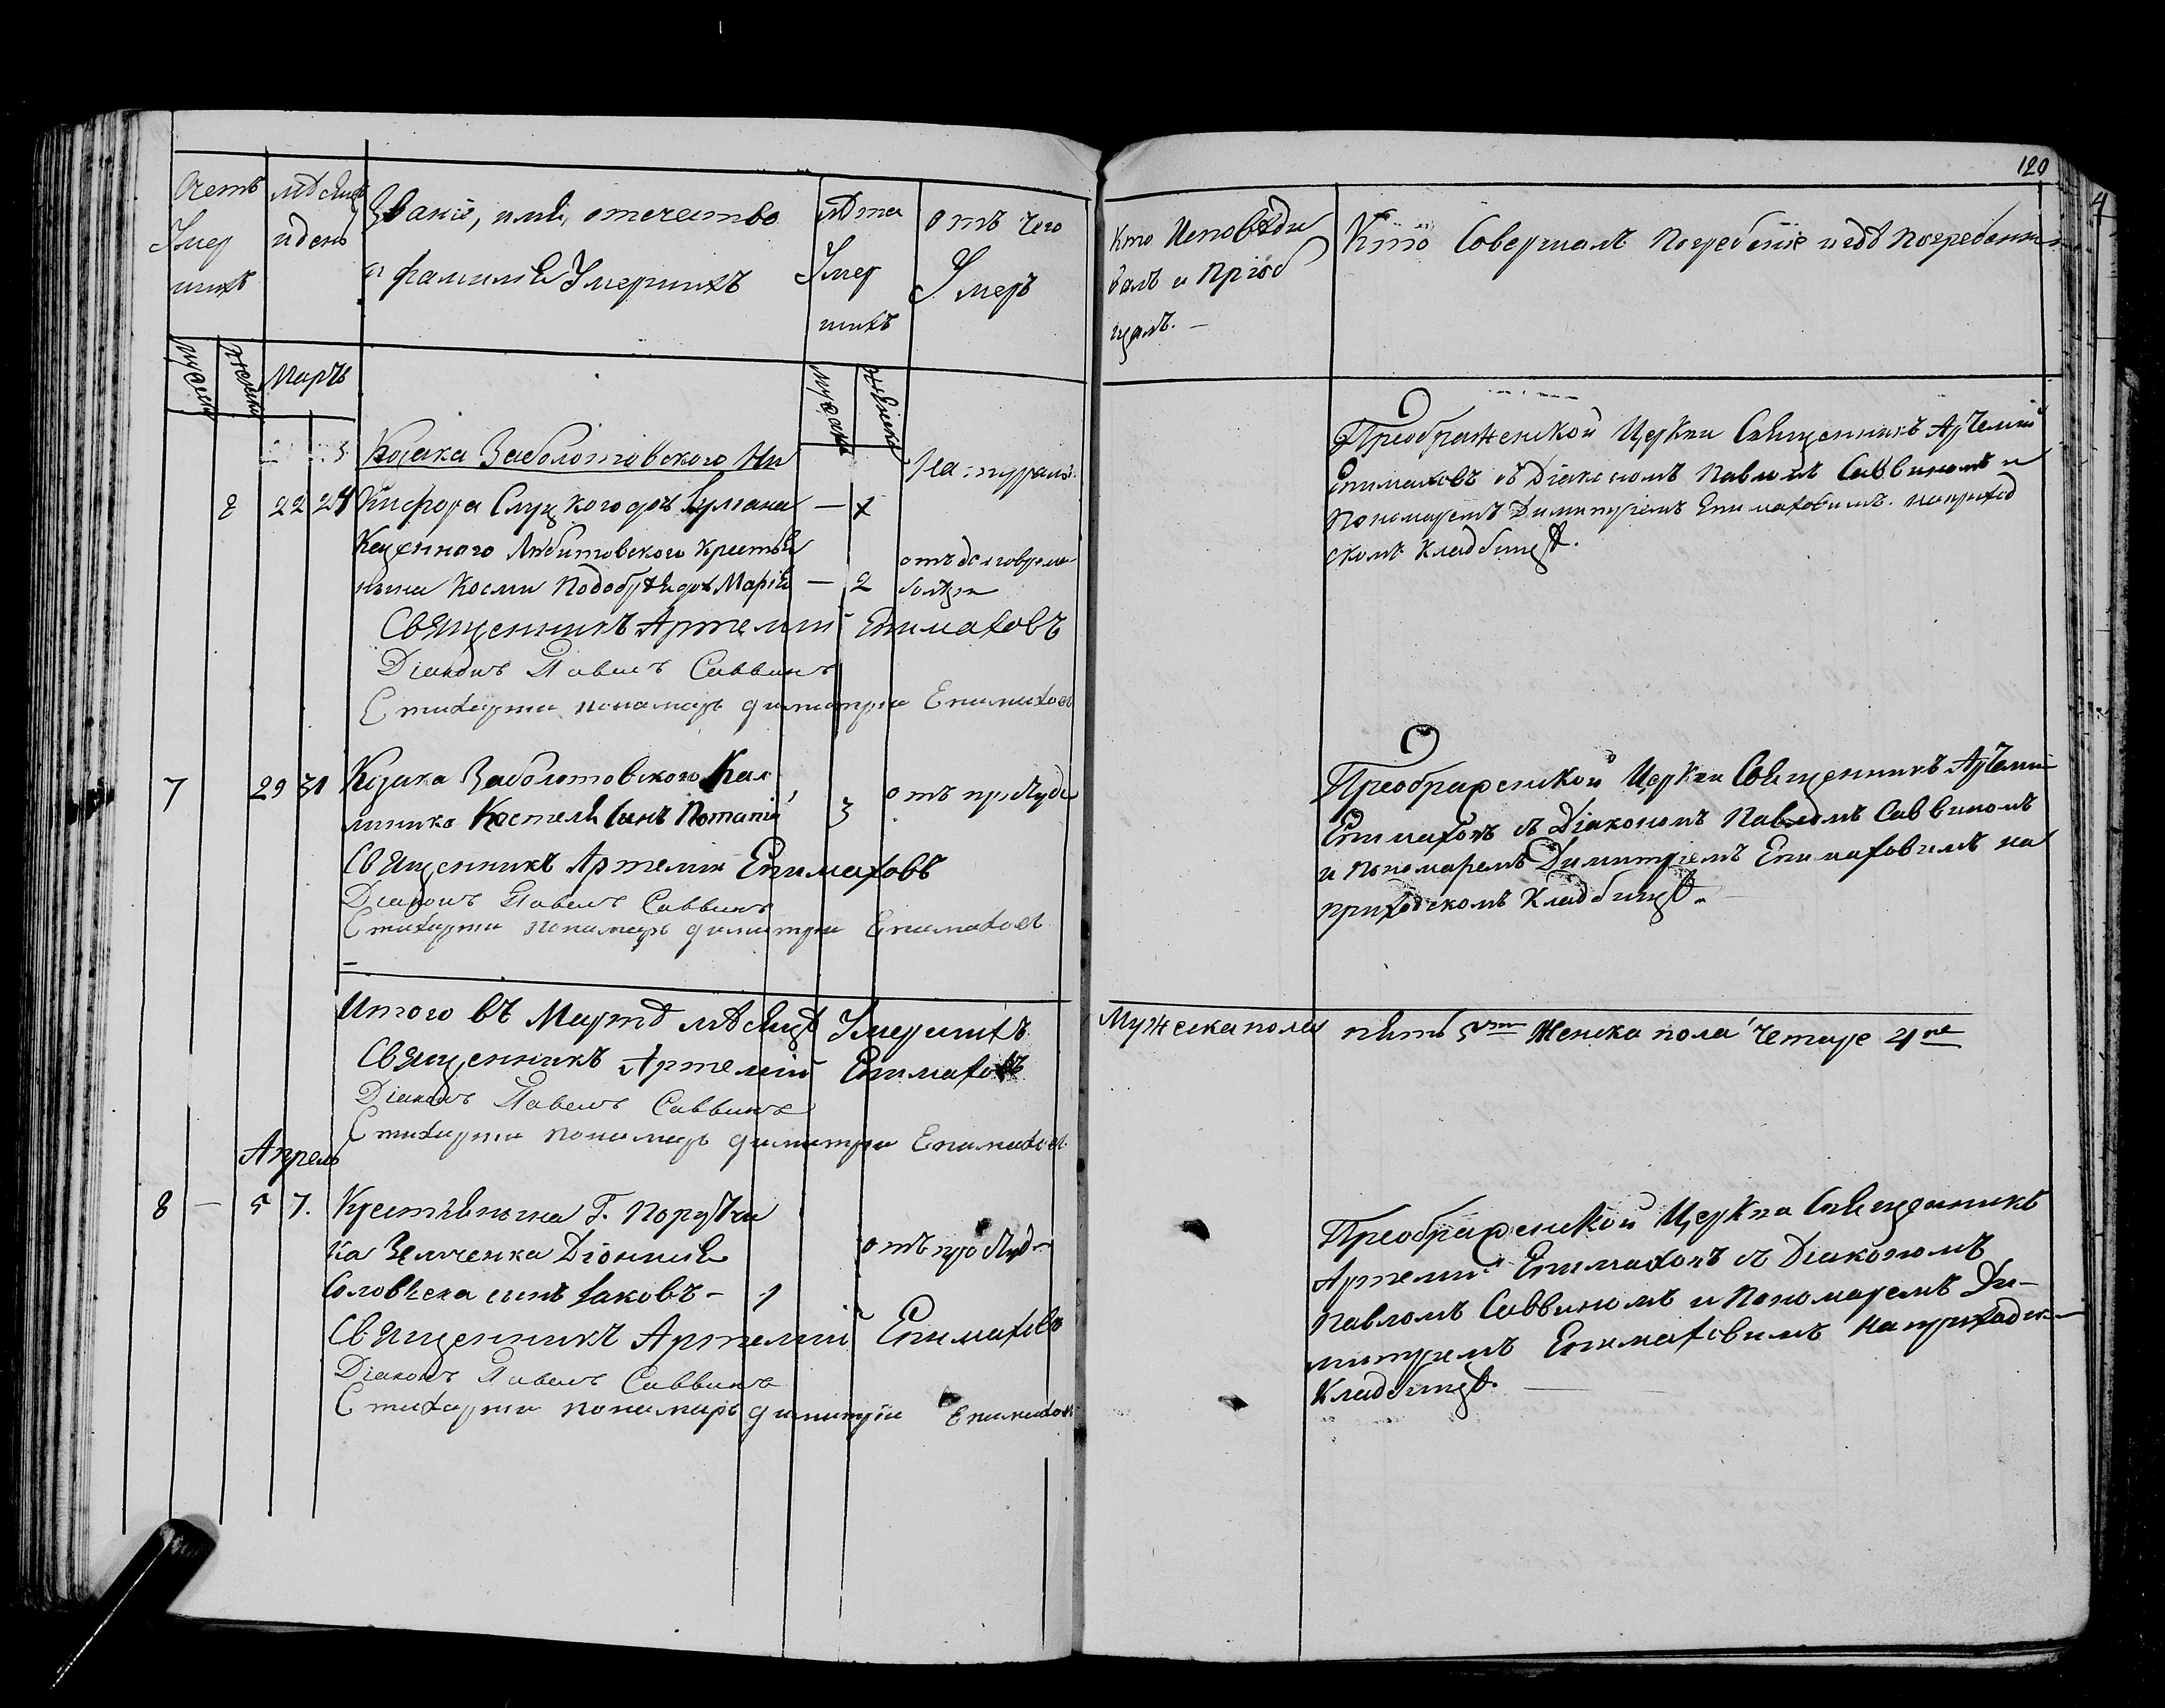 120
Счетъ
Умер
шихъ
мѣсяцъ
и день
Званіе, имя, отечество
и фамилія Умершихъ
лѣта
Умер
шихъ
отъ чего
Умеръ
Кто Исповѣди
валъ и Пріоб
щалъ. —
Кто Совершалъ Погребеніе и гдѣ Погребены
мужска
женска
Мартъ
мужска
женска
Козака Заболотовского Ни
кифора Слуцкого дочь — 1
2 22 24
Натурально
Казенного Любитовского Крестья
нина Космы дочь Марія — 2
отъ
болѣзни
Священникъ Артемій Епимаховъ
Діаконъ Павелъ Саввинъ
Стихарни понамарь Димитрій Епимаховъ
Преображенской Церкви Священникъ Артемій
Епимаховъ съ Діакономъ Павломъ Саввиномъ и
Пономаремъ Димитріемъ Епимаховимъ. на приход
скомъ Кладбищѣ.
7 29 31 Козака Заболотовского Кал
линика Костеля сынъ Потапій 3
отъ простуди
Священникъ Артемій Епимаховъ
Діаконъ Павелъ Саввинъ
Стихарни понамарь Димитрій Епимаховъ
Преображенской Церкви Священникъ Артемій
Епимаховъ съ Діакономъ Павломъ Саввиномъ
и Пономаремъ Димитріемъ Епимаховимъ на
приходскомъ Кладбищѣ.
Итого въ Мартѣ мѣсяцѣ Умершихъ Мужеска пола пять 5ть Женска пола Четыре 4ре
Священникъ Артемій Епимаховъ
Діаконъ Павелъ Саввинъ
Стихарни понамарь Димитрій Епимаховъ
Апрель
8 — 5 7. Крестьянина Г. Поручи
ка Зенченка Діонисія
сынъ Іаковъ — 1
отъ простуд
Священникъ Артемій Епимаховъ
Діаконъ Павелъ Саввинъ
Стихарни понамарь Димитрій Епимаховъ
Преображенской Церкви Священникъ
Артемій Епимаховъ съ Діакономъ
Павломъ Саввиномъ и Пономаремъ Ди-
митріемъ Епимаховимъ на приходск
Кладбищѣ.